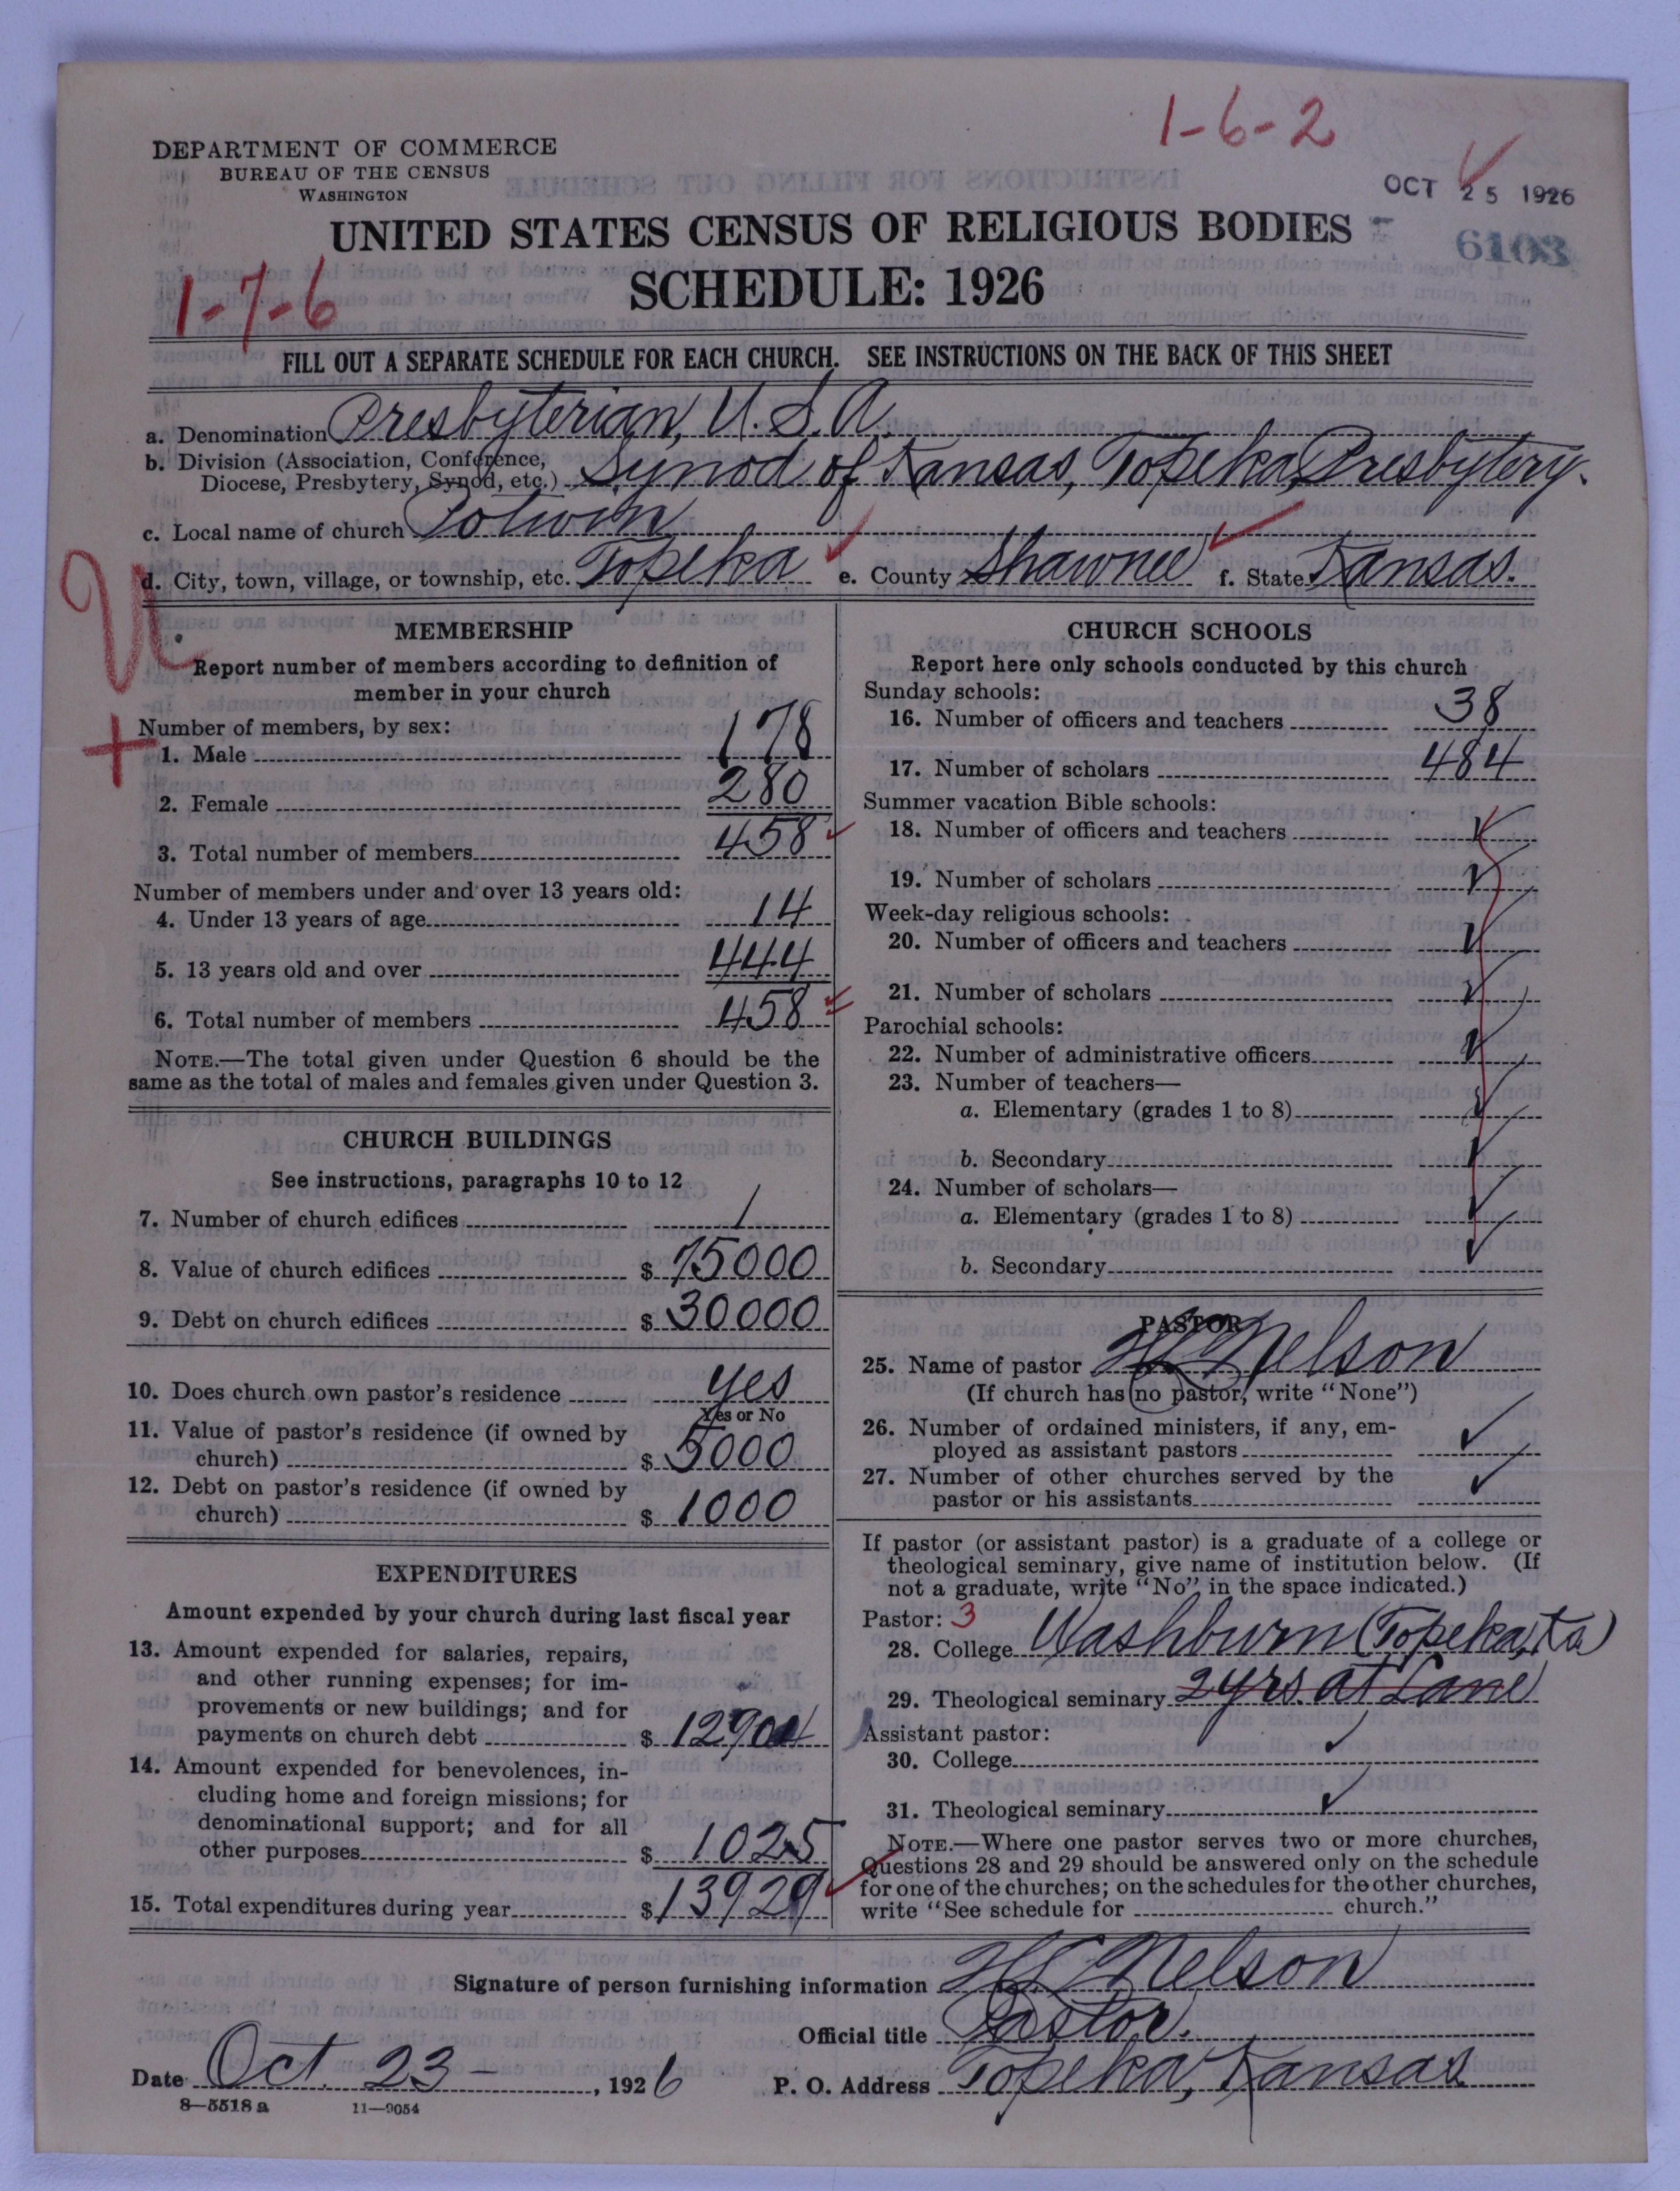 1-6-2
DEPARTMENT OF COMMERCE
BUREAU OF THE CENSUS
WASHINGTON
OCT 25 1926
UNITED STATES CENSUS OF RELIGIOUS BODIES
6103
SCHEDULE: 1926
1-7-6
FILL OUT A SEPARATE SCHEDULE FOR EACH CHURCH. SEE INSTRUCTIONS ON THE BACK OF THIS SHEET
a. Denomination Presbyterian, U.S.A.
b. Division (Association, Conference,
Diocese, Presbytery, Synod, etc.) Synod of Kansas, Topeka Presbytery.
c. Local name of church Potwin
d. City, town, village, or township, etc. Topeka e. County Shawnee f. State Kansas.
U
+
MEMBERSHIP
Report number of members according to definition of
member in your church
Number of members, by sex:
1. Male 178
2. Female 280
3. Total number of members 458
Number of members under and over 13 years old:
4. Under 13 years of age 14
5. 13 years old and over 444
6. Total number of members 458
NOTE.—The total given under Question 6 should be the
same as the total of males and females given under Question 3.
CHURCH BUILDINGS
See instructions, paragraphs 10 to 12
7. Number of church edifices 1
8. Value of church edifices $ 75000
9. Debt on church edifices $ 30000
10. Does church own pastor's residence yes
Yes or No
11. Value of pastor's residence (if owned by
church) $ 5000
12. Debt on pastor's residence (if owned by
church) $ 1000
EXPENDITURES
Amount expended by your church during last fiscal year
13. Amount expended for salaries, repairs,
and other running expenses; for im-
provements or new buildings; and for
payments on church debt $ 12904
14. Amount expended for benevolences, in-
cluding home and foreign missions; for
denominational support; and for all
other purposes $ 1025
15. Total expenditures during year $ 13929
CHURCH SCHOOLS
Report here only schools conducted by this church
Sunday schools:
16. Number of officers and teachers 38
17. Number of scholars 484
Summer vacation Bible schools:
18. Number of officers and teachers
19. Number of scholars
Week-day religious schools:
20. Number of officers and teachers
21. Number of scholars
Parochial schools:
22. Number of administrative officers
23. Number of teachers—
a. Elementary (grades 1 to 8)
b. Secondary
24. Number of scholars—
a. Elementary (grades 1 to 8)
b. Secondary
PASTOR
25. Name of pastor Nelson
(If church has no pastor, write "None")
26. Number of ordained ministers, if any, em-
ployed as assistant pastors
27. Number of other churches served by the
pastor or his assistants
If pastor (or assistant pastor) is a graduate of a college or
theological seminary, give name of institution below. (If
not a graduate, write "No" in the space indicated.)
Pastor: 3
28. College Washburn (Topeka, Ka)
29. Theological seminary 2 yrs. at Lane
Assistant pastor:
30. College
31. Theological seminary
NOTE.—Where one pastor serves two or more churches,
Questions 28 and 29 should be answered only on the schedule
for one of the churches; on the schedules for the other churches,
write "See schedule for church."
Signature of person furnishing information Nelson
Official title Pastor.
Date Oct. 23 - , 1926 P. O. Address Topeka, Kansas
8—5518 a 11—9054